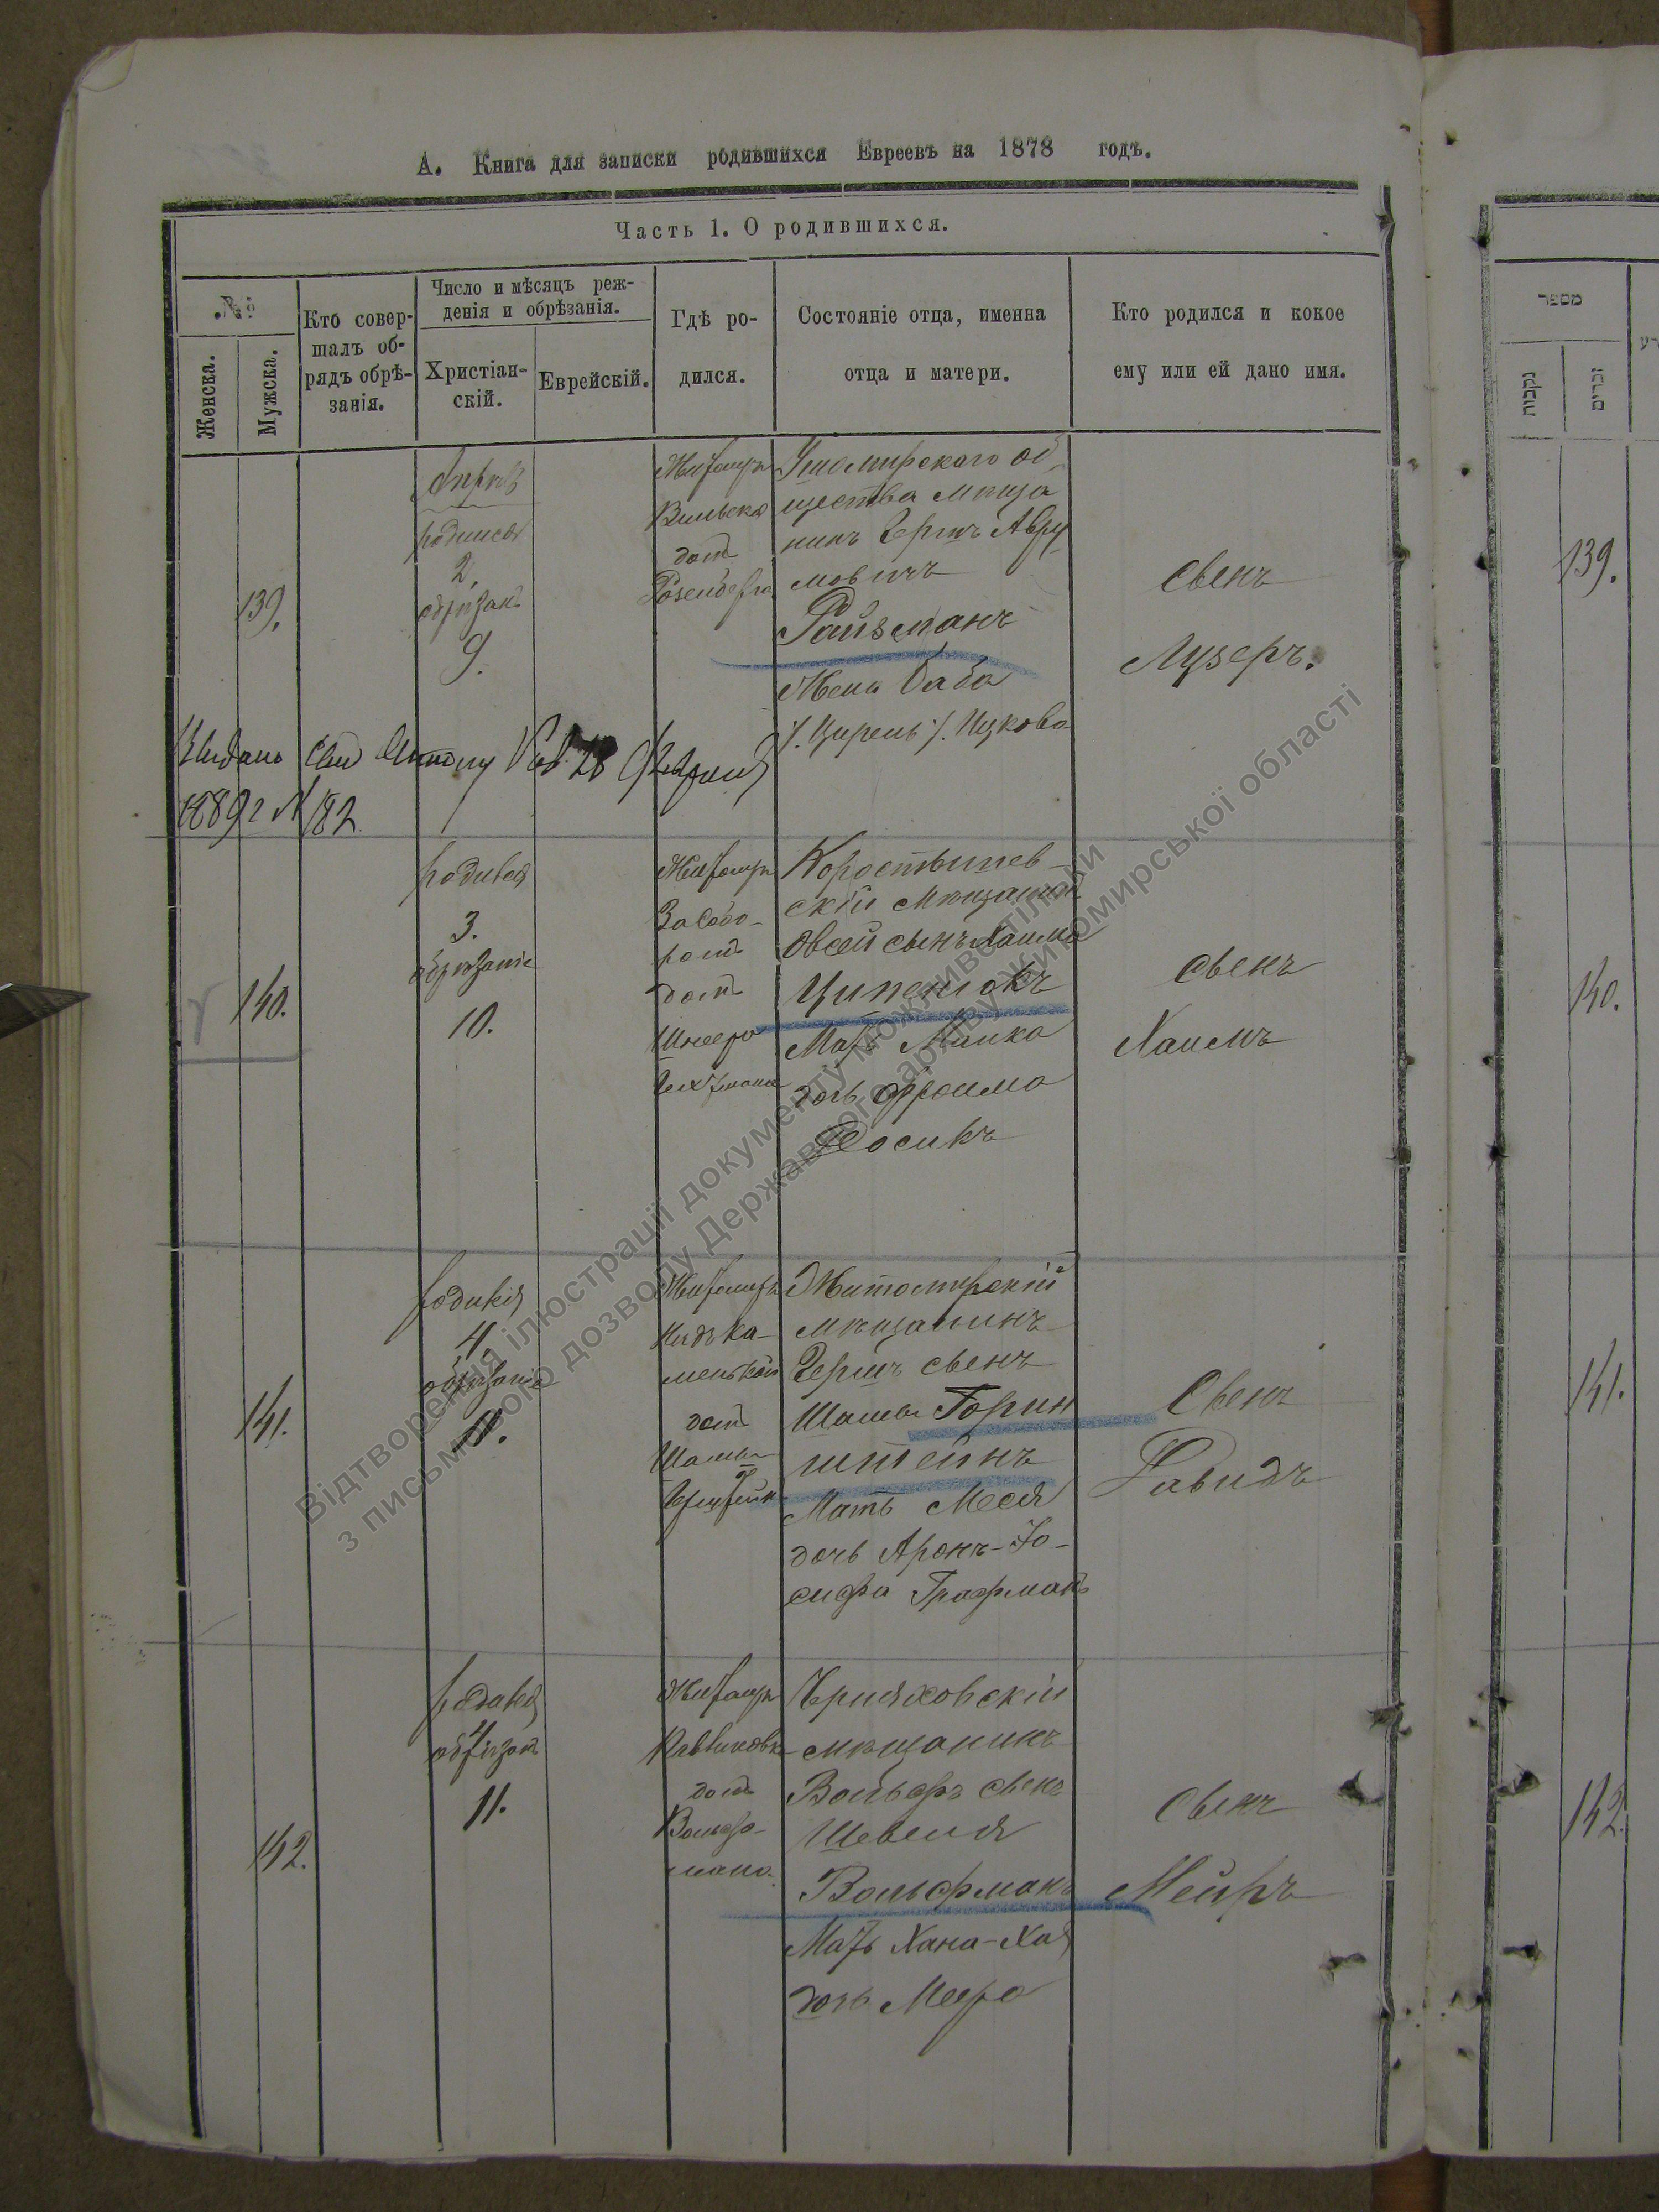 А. Книга для записки родившихся Евреевъ на 1878 годъ.
Часть 1. О родившихся.
№
Женска.
Мужска.
Кто совер-
шалъ об-
рядъ обрѣ-
занія.
Число и мѣсяцъ реж-
денія и обрѣзанія.
Христіан-
скій.
Еврейскій.
Гдѣ ро-
дился.
Состояніе отца, именна
отца и матери.
Кто родился и кокое
ему или ей дано имя.
139.
родился
2.
9.
Житомиръ
Вильска
домъ
Ушомирскаго об
щества мѣща
нинъ Гершъ Авру
мовичъ
Райзманъ
Жена Баба
/. Цирель ./. Ицкова
сынъ
Лузеръ.
Выдано
1889 г № 182
140.
родился
3.
обрѣзаніе
10.
Житомиръ
домъ
Шнеера
Коростышев-
скій мѣщанинъ
Овсей сынъ Хаима
Ципенюкъ
Мать Малка
дочь Фроима
Досикъ
сынъ
Хаимъ
141.
родился
4.
обрѣзаніе
11.
Житомиръ
домъ
Житомирскій
мѣщанинъ
Гершъ сынъ
Горин
штейнъ
Мать Меся
дочь Аронъ-Іо-
сифа Графманъ
Сынъ
Давидъ
142.
родился
4
11.
Житомиръ
домъ
Вольфа-
мана.
Черняховскій
мѣщанинъ
Вольфъ сынъ
Шевеля
Вольфманъ
Мать Хана-Хая
дочь Меера
Сынъ
Мейръ
מספר
נקבות
זכרים
139.
140.
141.
142.
Відтворення ілюстрації документу можливо тільки
з письмового дозволу Державного архіву Житомирської області